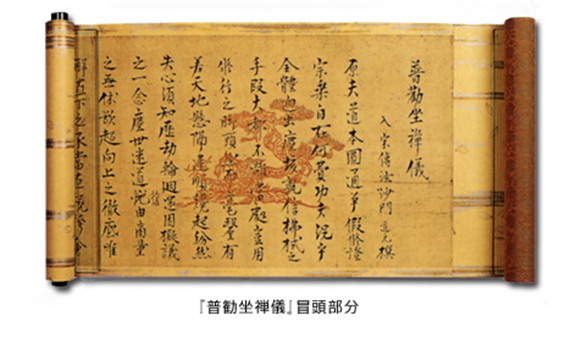 普勸坐禪儀
入宋傳法沙門 道元撰
原夫道本圓通爭假修證
宗乗自在何費功夫況乎
全體迥出塵埃孰信拂拭之
手段大都不離當處豈用
修行之脚頭然而毫釐有
差天地懸隔違順纔起紛然
失心須知歷劫輪迴還因擬議
之一念塵世迷道復由商量
之無休欲超向上之徹底唯
直下之承當直
『普勧坐禅儀』冒頭部分